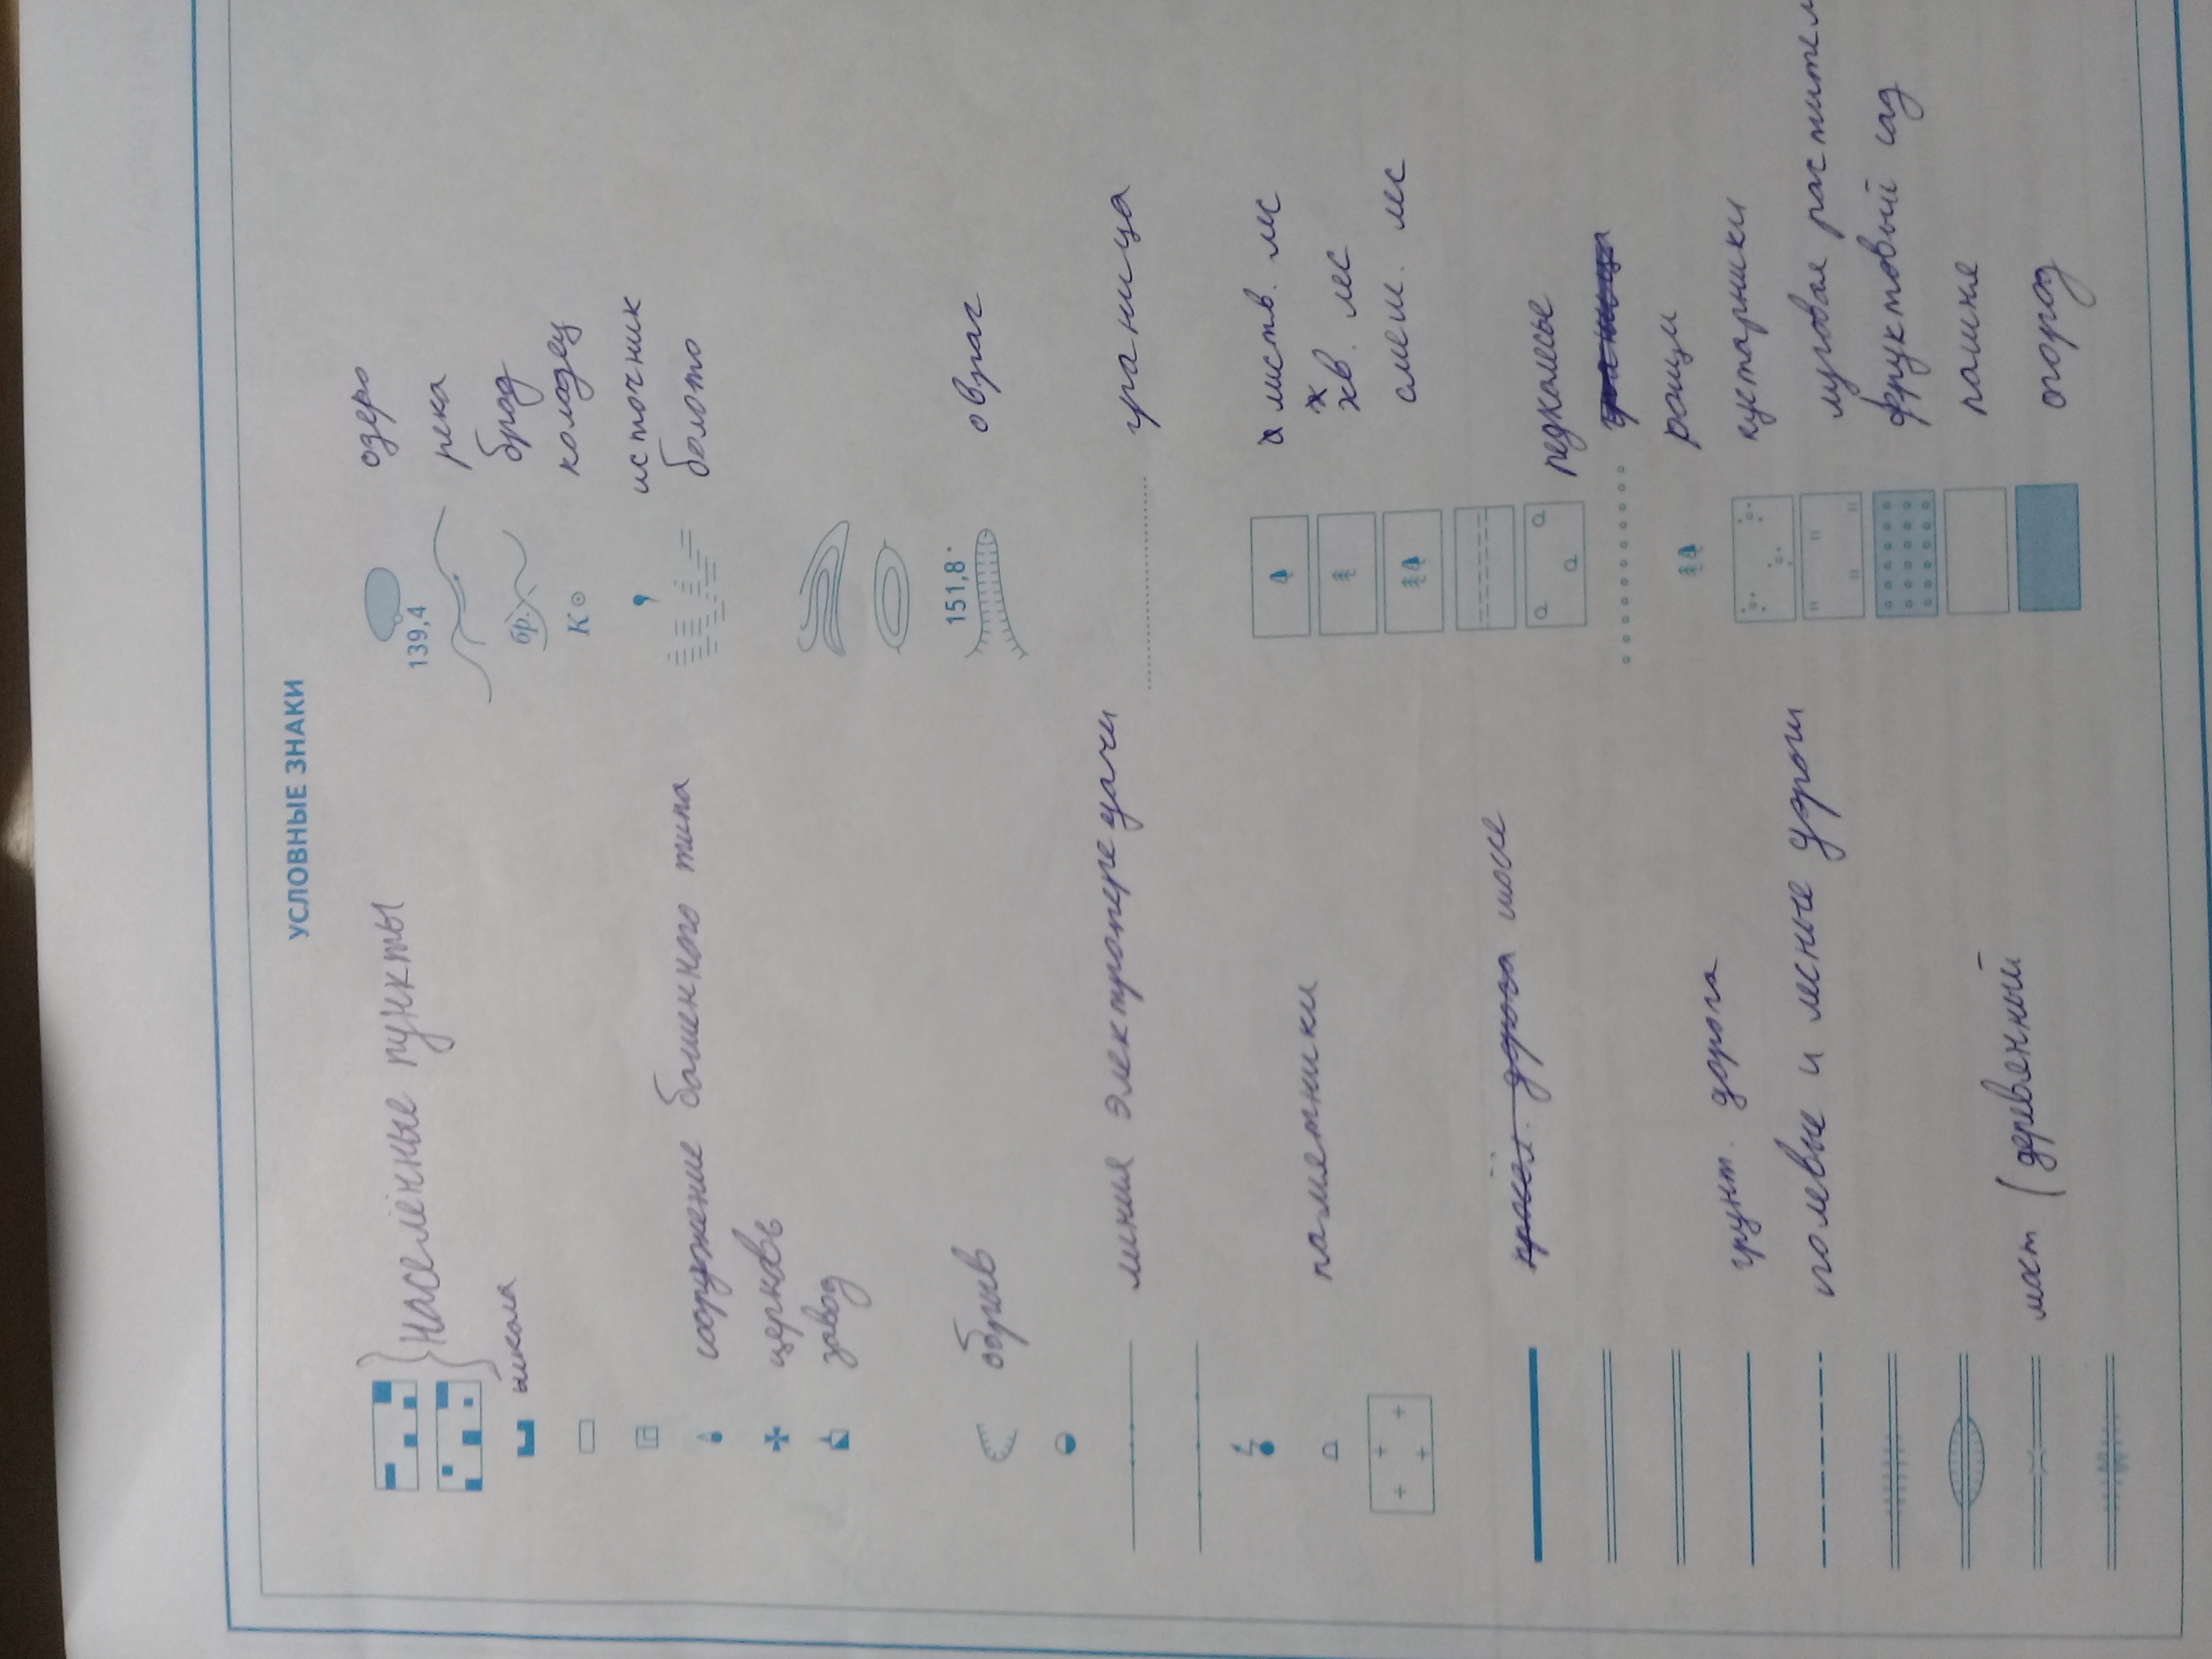 УСЛОВНЫЕ ЗНАКИ
Населённые пункты
школа
сооружение башенного типа
церковь
завод
обрыв
линия электропередачи
памятники
шоссе
грунт. дорога
полевые и лесные дороги
мост (деревенный
озеро
139,4
река
бр.
брод
К
колодец
источник
болото
151,8
овраг
граница
листв. лес
хв. лес
смеш. лес
редколесье
рощи
кустарники
луговая растител
фруктовый сад
пашня
огород